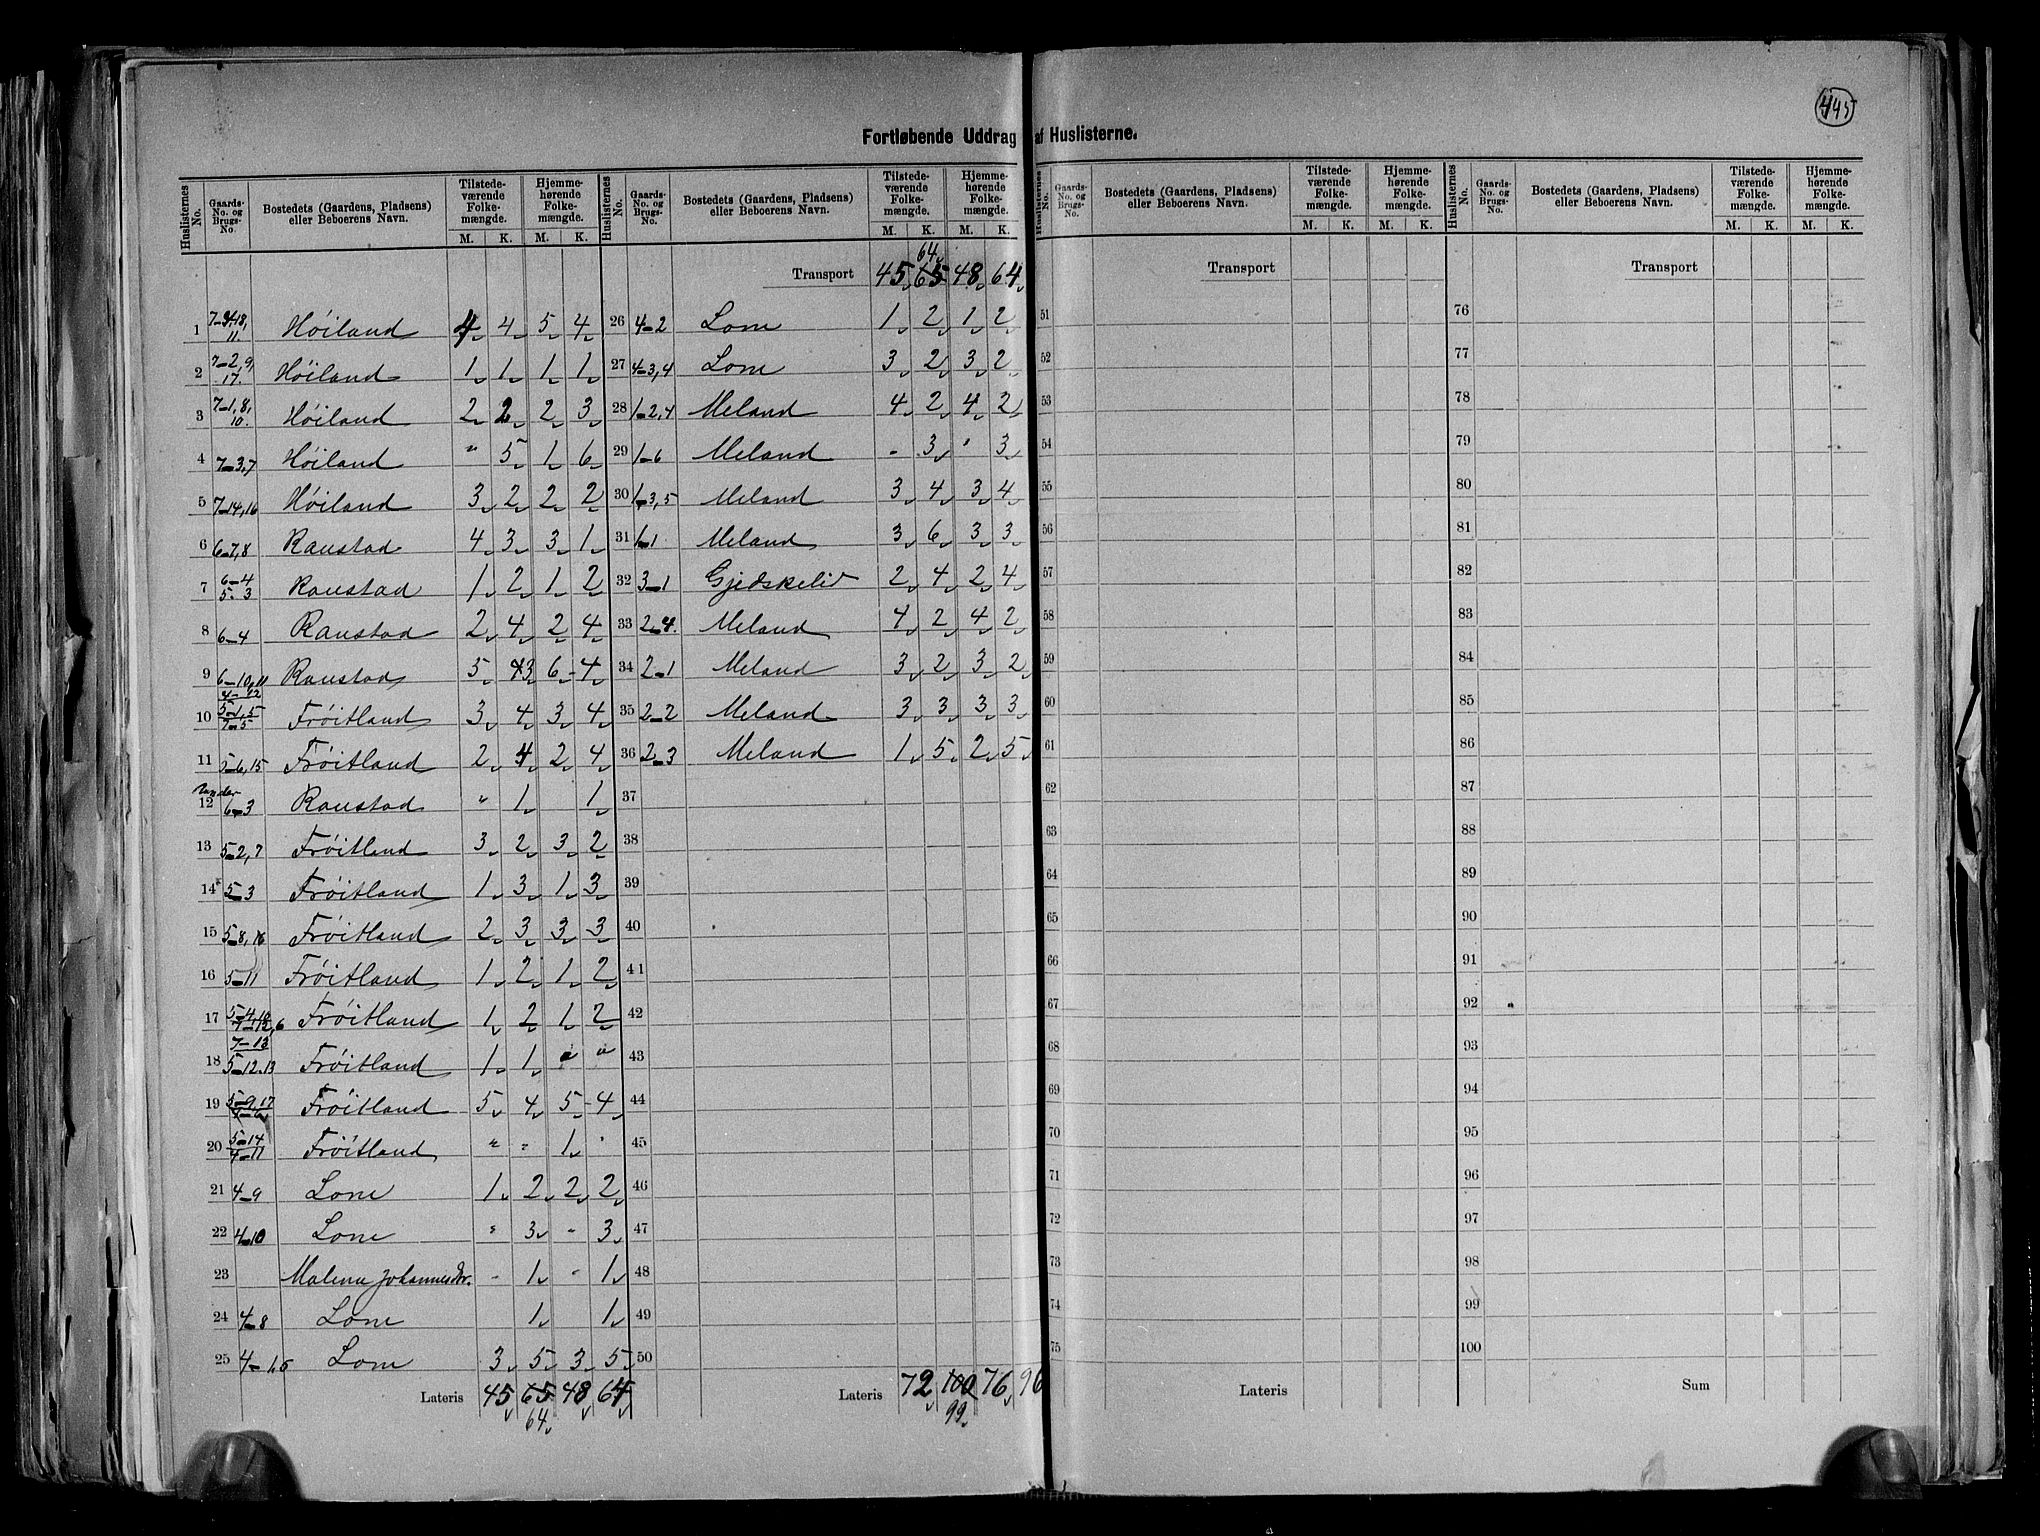 445
Fortløbende Uddrag af Huslisterne.
Huslisternes No. Gaards-No. og Brugs-No. Bostedets (Gaardens, Pladsens) eller Beboerens Navn. Tilstedeværende Folkemængde. M. K. Hjemmehørende Folkemængde. M. K.
1 Høiland 4 4 5 4
2 7-2, 9, 17. Høiland 1 1 1 1
3 7-1, 8, 10. Høiland 2 2 2 3
4 7-3,7 Høiland " 5 1 6
5 7-14,16 Høiland 3 2 2 2
6 6-7,8 Raustad 4 3 3 1
7 6-4 5-3 Raustad 1 2 1 2
8 6-4 Raustad 2 4 2 4
9 6-10,11 Raustad 5 3 6 4
10 Frøitland 3 4 3 4
11 5-6,15 Frøitland 2 4 2 4
12 under 6-3 Raustad " 1 1
13 5-2,7 Frøitland 3 2 3 2
14 5-3 Frøitland 1 3 1 3
15 5-8,16 Frøitland 2 3 3 3
16 5-11 Frøitland 1 2 1 2
17 Frøitland 1 2 1 2
18 7-13 5-12.13 Frøitland 1 1 " "
19 5-9,17 Frøitland 5 4 5 4
20 5-14 4-11 Frøitland " " 1 "
21 4-9 Lone 1 2 2 2
22 4-10 Lone " 3 " 3
23 Malena Johannesdr. - 1 - 1
24 4-8 Lone 1 1
25 4-1,5 Lone 3 5 3 5
Lateris 45 65 48 64
64
Huslisternes No. Gaards-No. og Brugs-No. Bostedets (Gaardens, Pladsens) eller Beboerens Navn. Tilstedeværende Folkemængde. M. K. Hjemmehørende Folkemængde. M. K.
64
Transport 45 65 48 64
26 4-2 Lone 1 2 1 2
27 4-3,4 Lone 3 2 3 2
28 1-2,4 Meland 4 2 4 2
29 1-6 Meland - 3 " 3
30 1-3,5 Meland 3 4 3 4
31 1-1 Meland 3 6 3 3
32 3-1 Gjedskelid 2 4 2 4
33 2-4. Meland 4 2 4 2
34 2-1 Meland 3 2 3 2
35 2-2 Meland 3 3 3 3
36 2-3 Meland 1 5 2 5
37
38
39
40
41
42
43
44
45
46
47
48
49
50
Lateris 72 100 76 96
99
Huslisternes No. Gaards-No. og Brugs-No. Bostedets (Gaardens, Pladsens) eller Beboerens Navn. Tilstedeværende Folkemængde. M. K. Hjemmehørende Folkemængde. M. K.
Transport
51
52
53
54
55
56
57
58
59
60
61
62
63
64
65
66
67
68
69
70
71
72
73
74
75
Lateris
Huslisternes No. Gaards-No. og Brugs-No. Bostedets (Gaardens, Pladsens) eller Beboerens Navn. Tilstedeværende Folkemængde. M. K. Hjemmehørende Folkemængde. M. K.
Transport
76
77
78
79
80
81
82
83
84
85
86
87
88
89
90
91
92
93
94
95
96
97
98
99
100
Sum